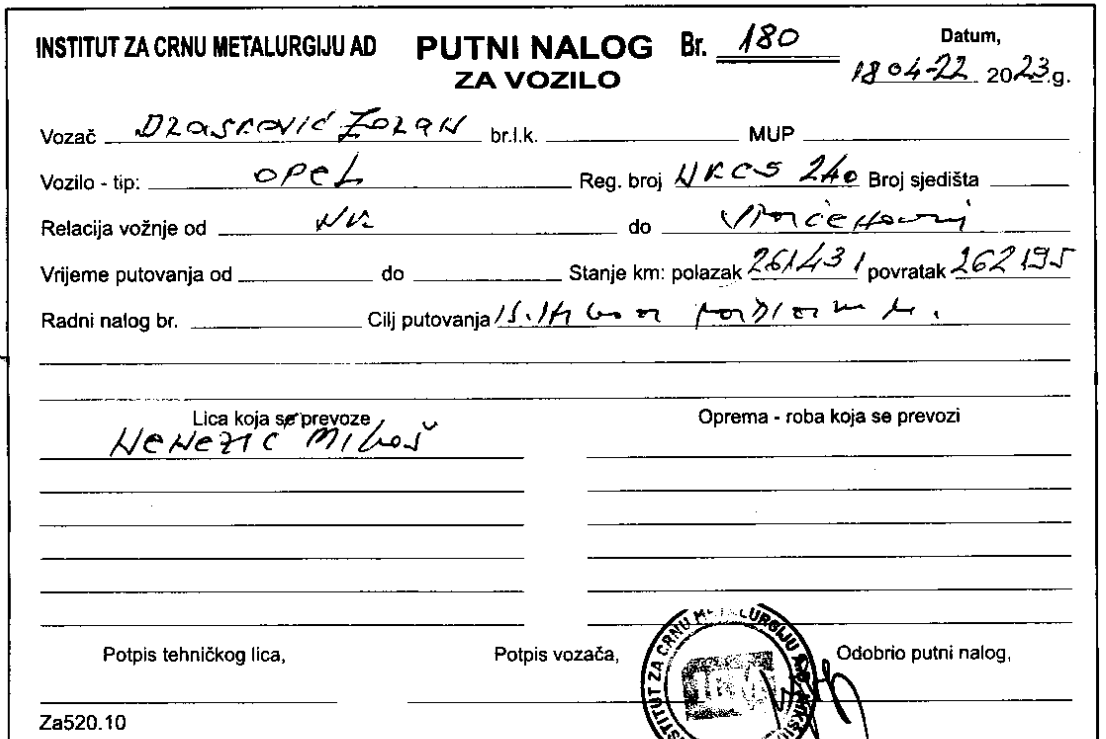 INSTITUT ZA CRNU METALURGIJU AD PUTNI NALOG Br. 180 Datum,
ZA VOZILO 18 04-22 2023.g.
Vozač Drašković Zoran br.l.k. MUP
Vozilo - tip: OPEL Reg. broj NKCS 240 Broj sjedišta
Relacija vožnje od NK do
Vrijeme putovanja od do Stanje km: polazak 261431 povratak 262195
Radni nalog br. Cilj putovanja
Lica koja se prevoze Oprema - roba koja se prevozi
Nenezić Miloš
Potpis tehničkog lica, Potpis vozača, Odobrio putni nalog,
INSTITUT ZA CRNU METALURGIJU A.D. NIKŠIĆ
Za520.10